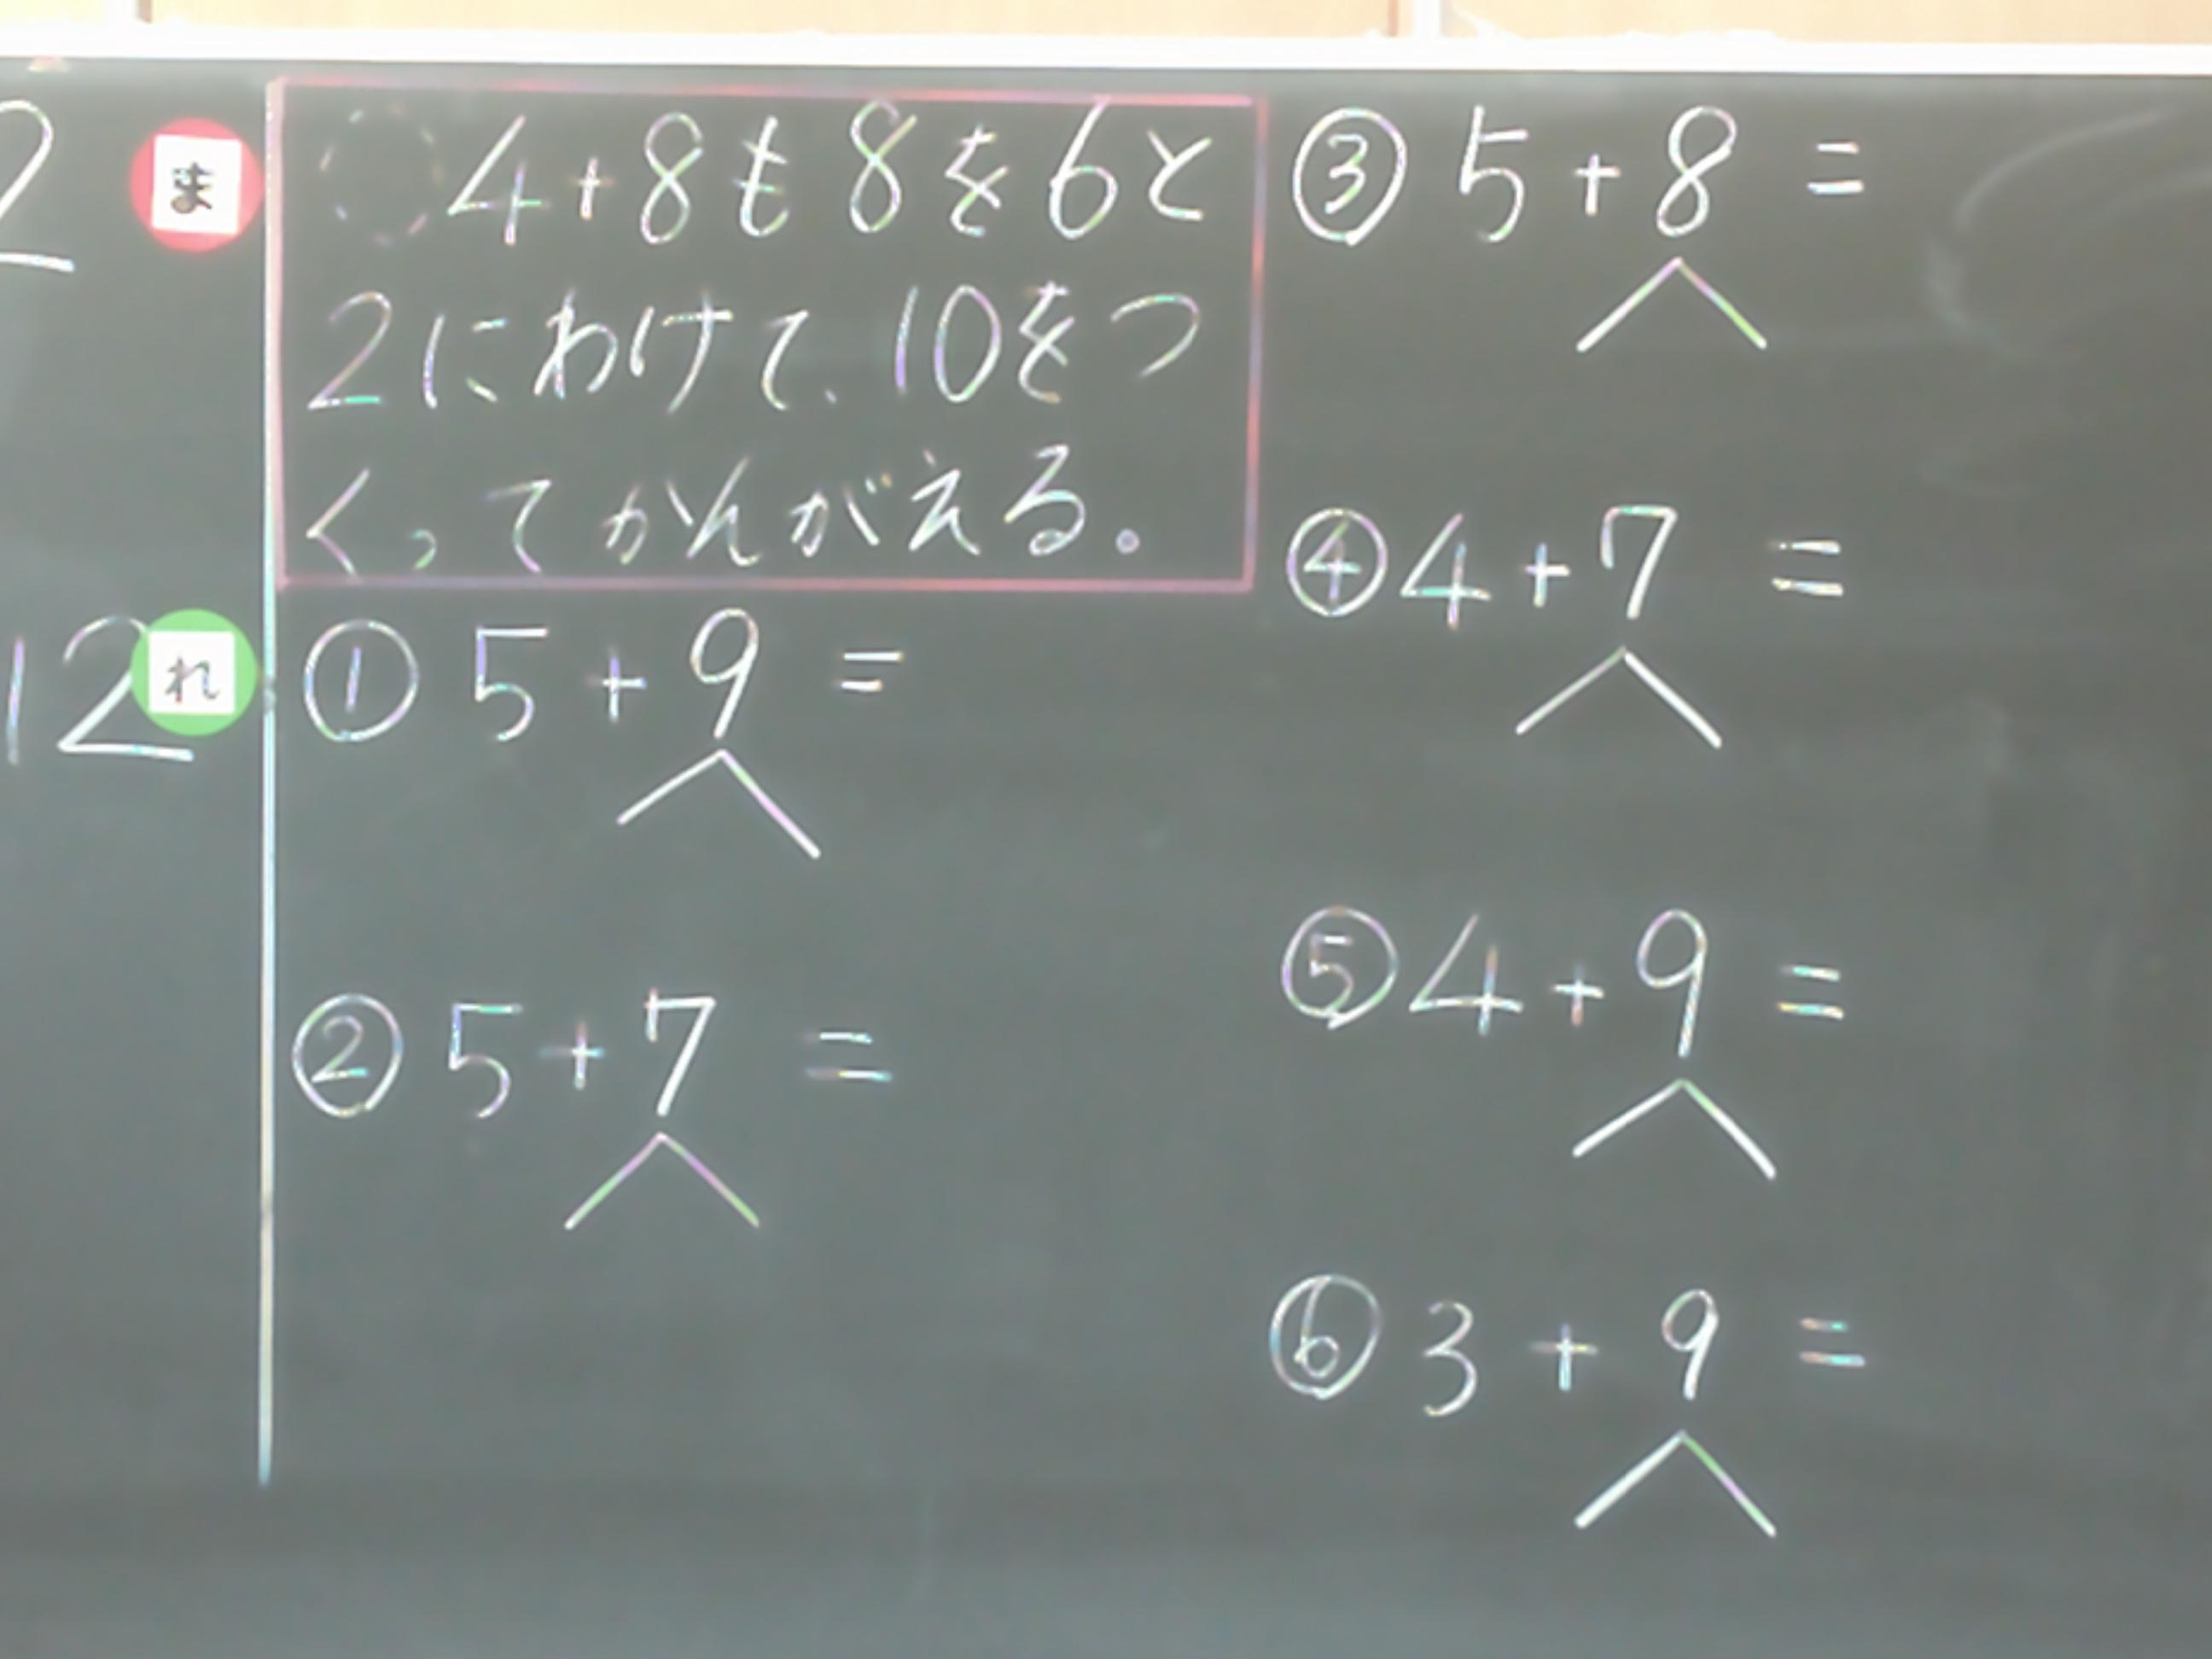 2
ま
4+8も8を6と
2にわけて、10をつ
くってかんがえる。
12
れ
① 5+9=
② 5+7=
③ 5+8=
④ 4+7=
⑤ 4+9=
⑥ 3+9=